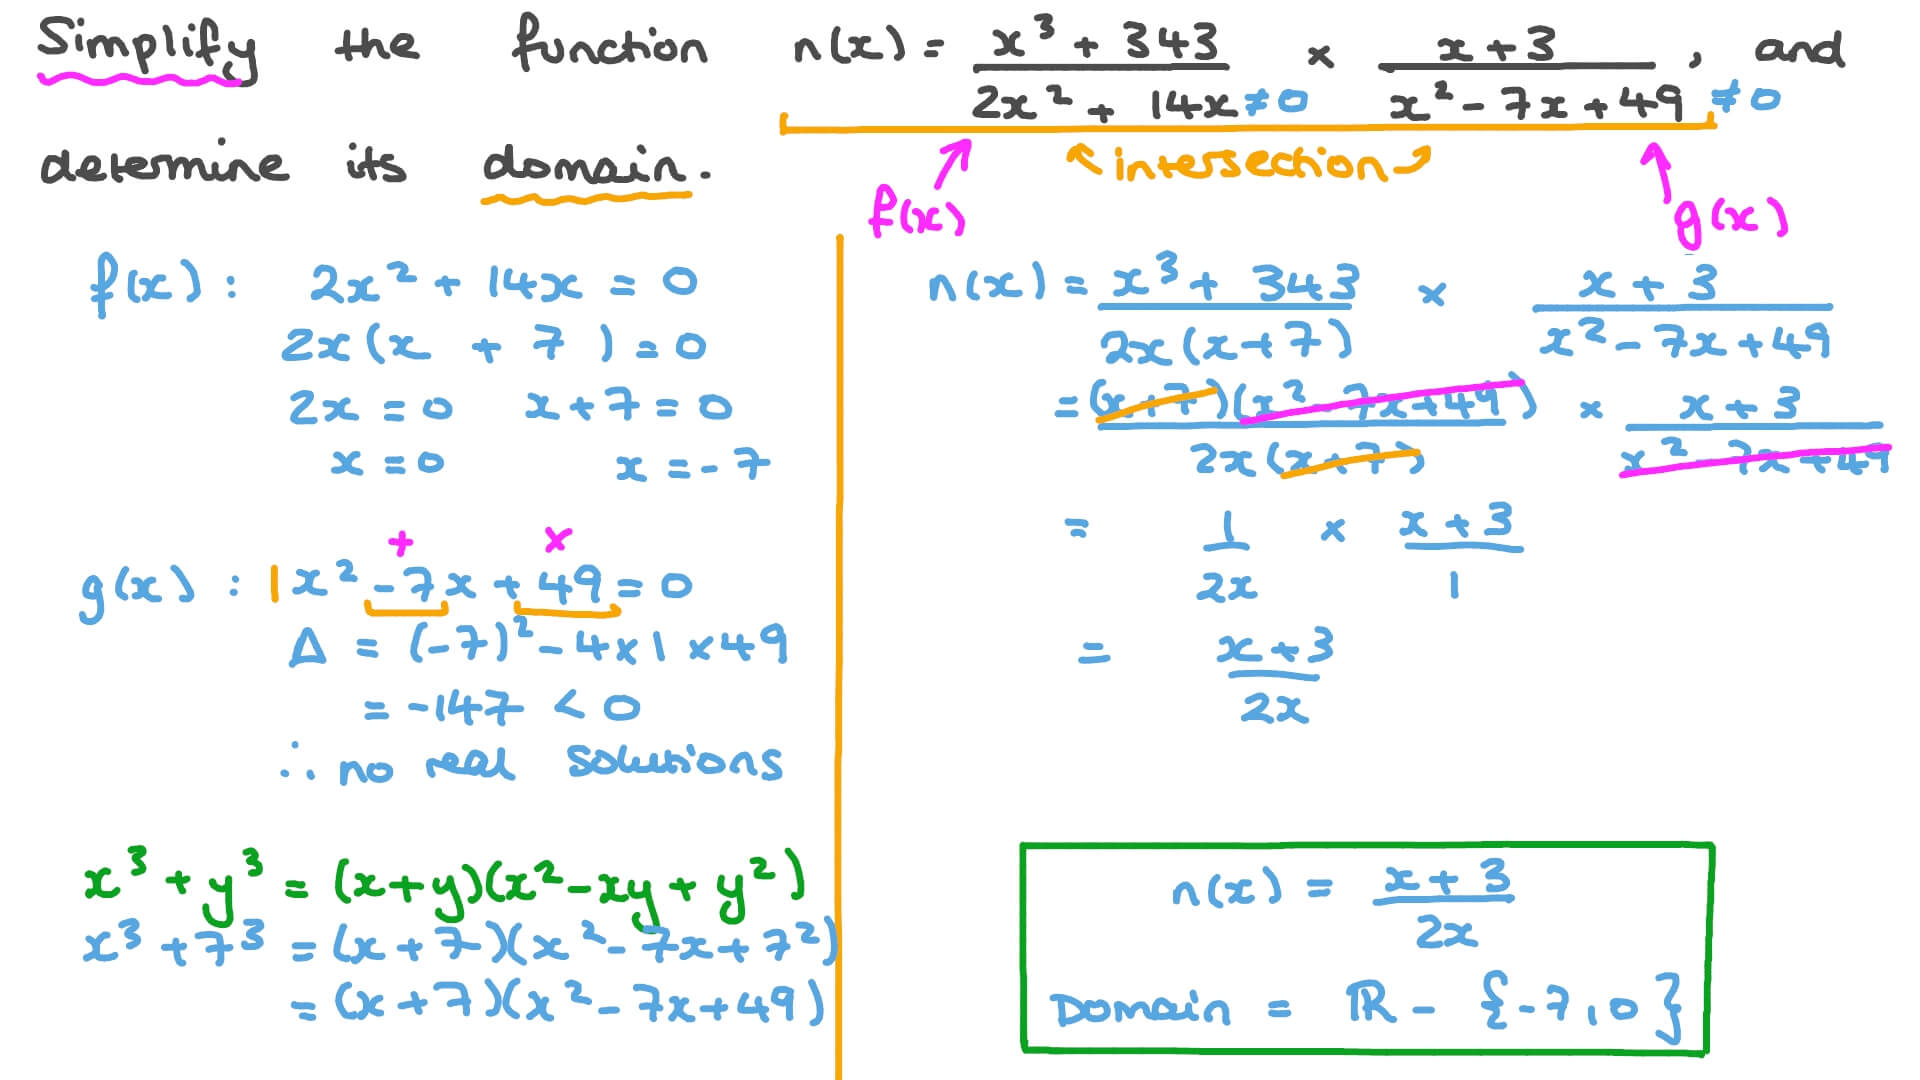 Simplify the function n(x) = x³ + 343 / 2x² + 14x ≠ 0 × x + 3 / x² - 7x + 49 ≠ 0 , and
determine its domain.
intersection
f(x)
g(x)
f(x) : 2x² + 14x = 0
2x(x + 7) = 0
2x = 0 x + 7 = 0
x = 0 x = -7
+ ×
g(x) : 1x² - 7x + 49 = 0
Δ = (-7)² - 4 × 1 × 49
= -147 < 0
∴ no real solutions
x³ + y³ = (x+y)(x² - xy + y²)
x³ + 7³ = (x + 7)(x² - 7x + 7²)
= (x + 7)(x² - 7x + 49)
n(x) = x³ + 343 / 2x(x+7) × x + 3 / x² - 7x + 49
= (x + 7)(x² - 7x + 49) / 2x(x + 7) × x + 3 / x² - 7x + 49
= 1 / 2x × x + 3 / 1
= x + 3 / 2x
n(x) = x + 3 / 2x
Domain = ℝ - {-7, 0}